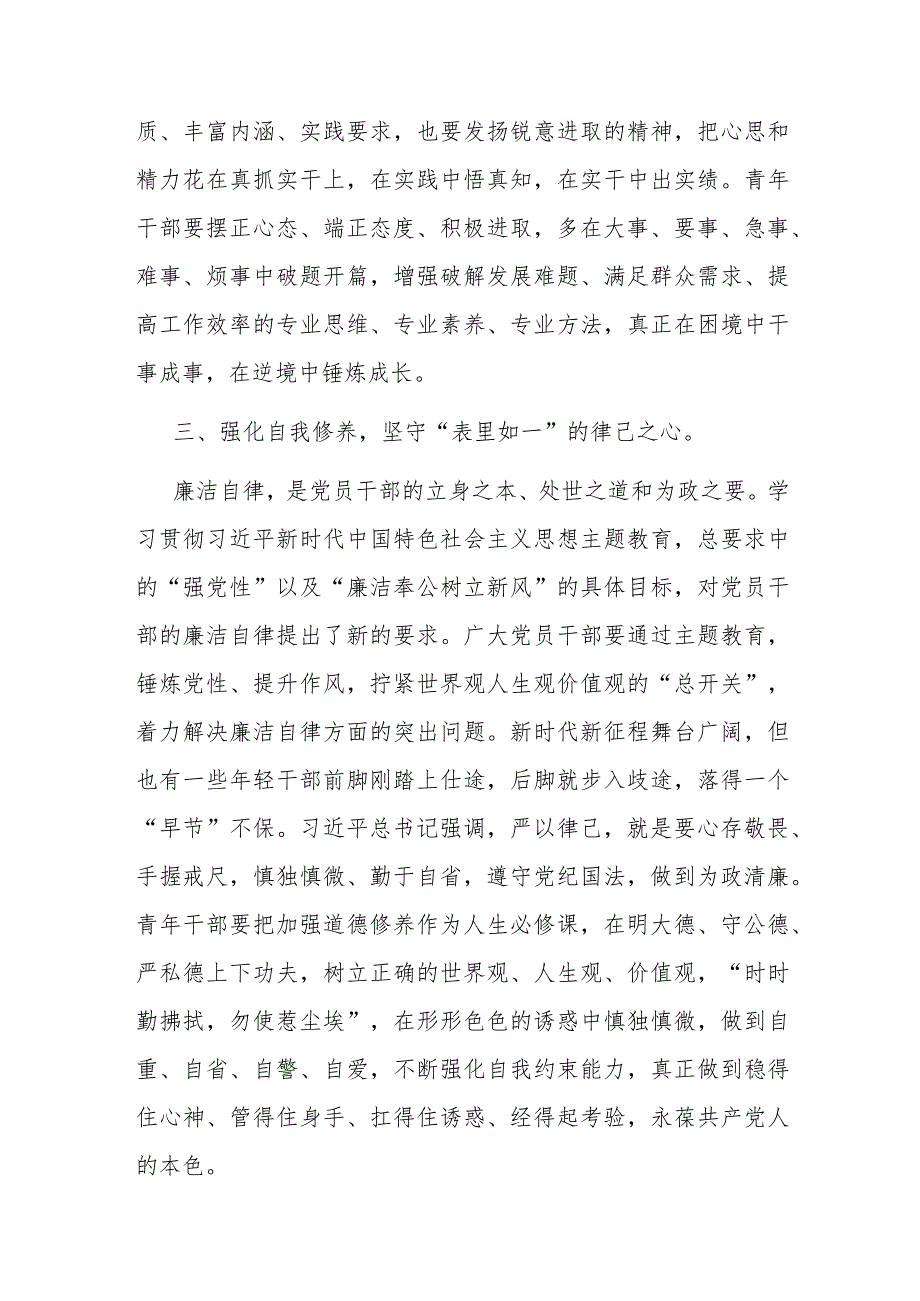 质、丰富内涵、实践要求，也要发扬锐意进取的精神，把心思和
精力花在真抓实干上，在实践中悟真知，在实干中出实绩。青年
干部要摆正心态、端正态度、积极进取，多在大事、要事、急事、
难事、烦事中破题开篇，增强破解发展难题、满足群众需求、提
高工作效率的专业思维、专业素养、专业方法，真正在困境中干
事成事，在逆境中锤炼成长。
三、强化自我修养，坚守“表里如一”的律己之心。
廉洁自律，是党员干部的立身之本、处世之道和为政之要。学
习贯彻习近平新时代中国特色社会主义思想主题教育，总要求中
的“强党性”以及“廉洁奉公树立新风”的具体目标，对党员干
部的廉洁自律提出了新的要求。广大党员干部要通过主题教育，
锤炼党性、提升作风，拧紧世界观人生观价值观的“总开关”，
着力解决廉洁自律方面的突出问题。新时代新征程舞台广阔，但
也有一些年轻干部前脚刚踏上仕途，后脚就步入歧途，落得一个
“早节”不保。习近平总书记强调，严以律己，就是要心存敬畏、
手握戒尺，慎独慎微、勤于自省，遵守党纪国法，做到为政清廉。
青年干部要把加强道德修养作为人生必修课，在明大德、守公德、
严私德上下功夫，树立正确的世界观、人生观、价值观，“时时
勤拂拭，勿使惹尘埃”，在形形色色的诱惑中慎独慎微，做到自
重、自省、自警、自爱，不断强化自我约束能力，真正做到稳得
住心神、管得住身手、扛得住诱惑、经得起考验，永葆共产党人
的本色。